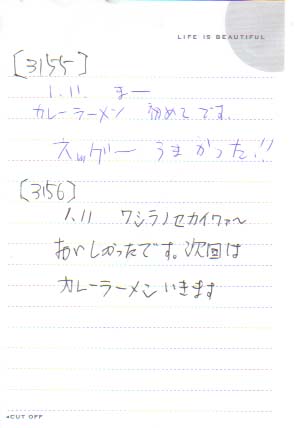 LIFE IS BEAUTIFUL
[3155]
1.11. まー
カレーラーメン 初めてです.
うまかった!!
[3156]
1.11 ワシラノセカイワァ〜
おいしかったです。次回は
カレーラーメンいきます
◂CUT OFF